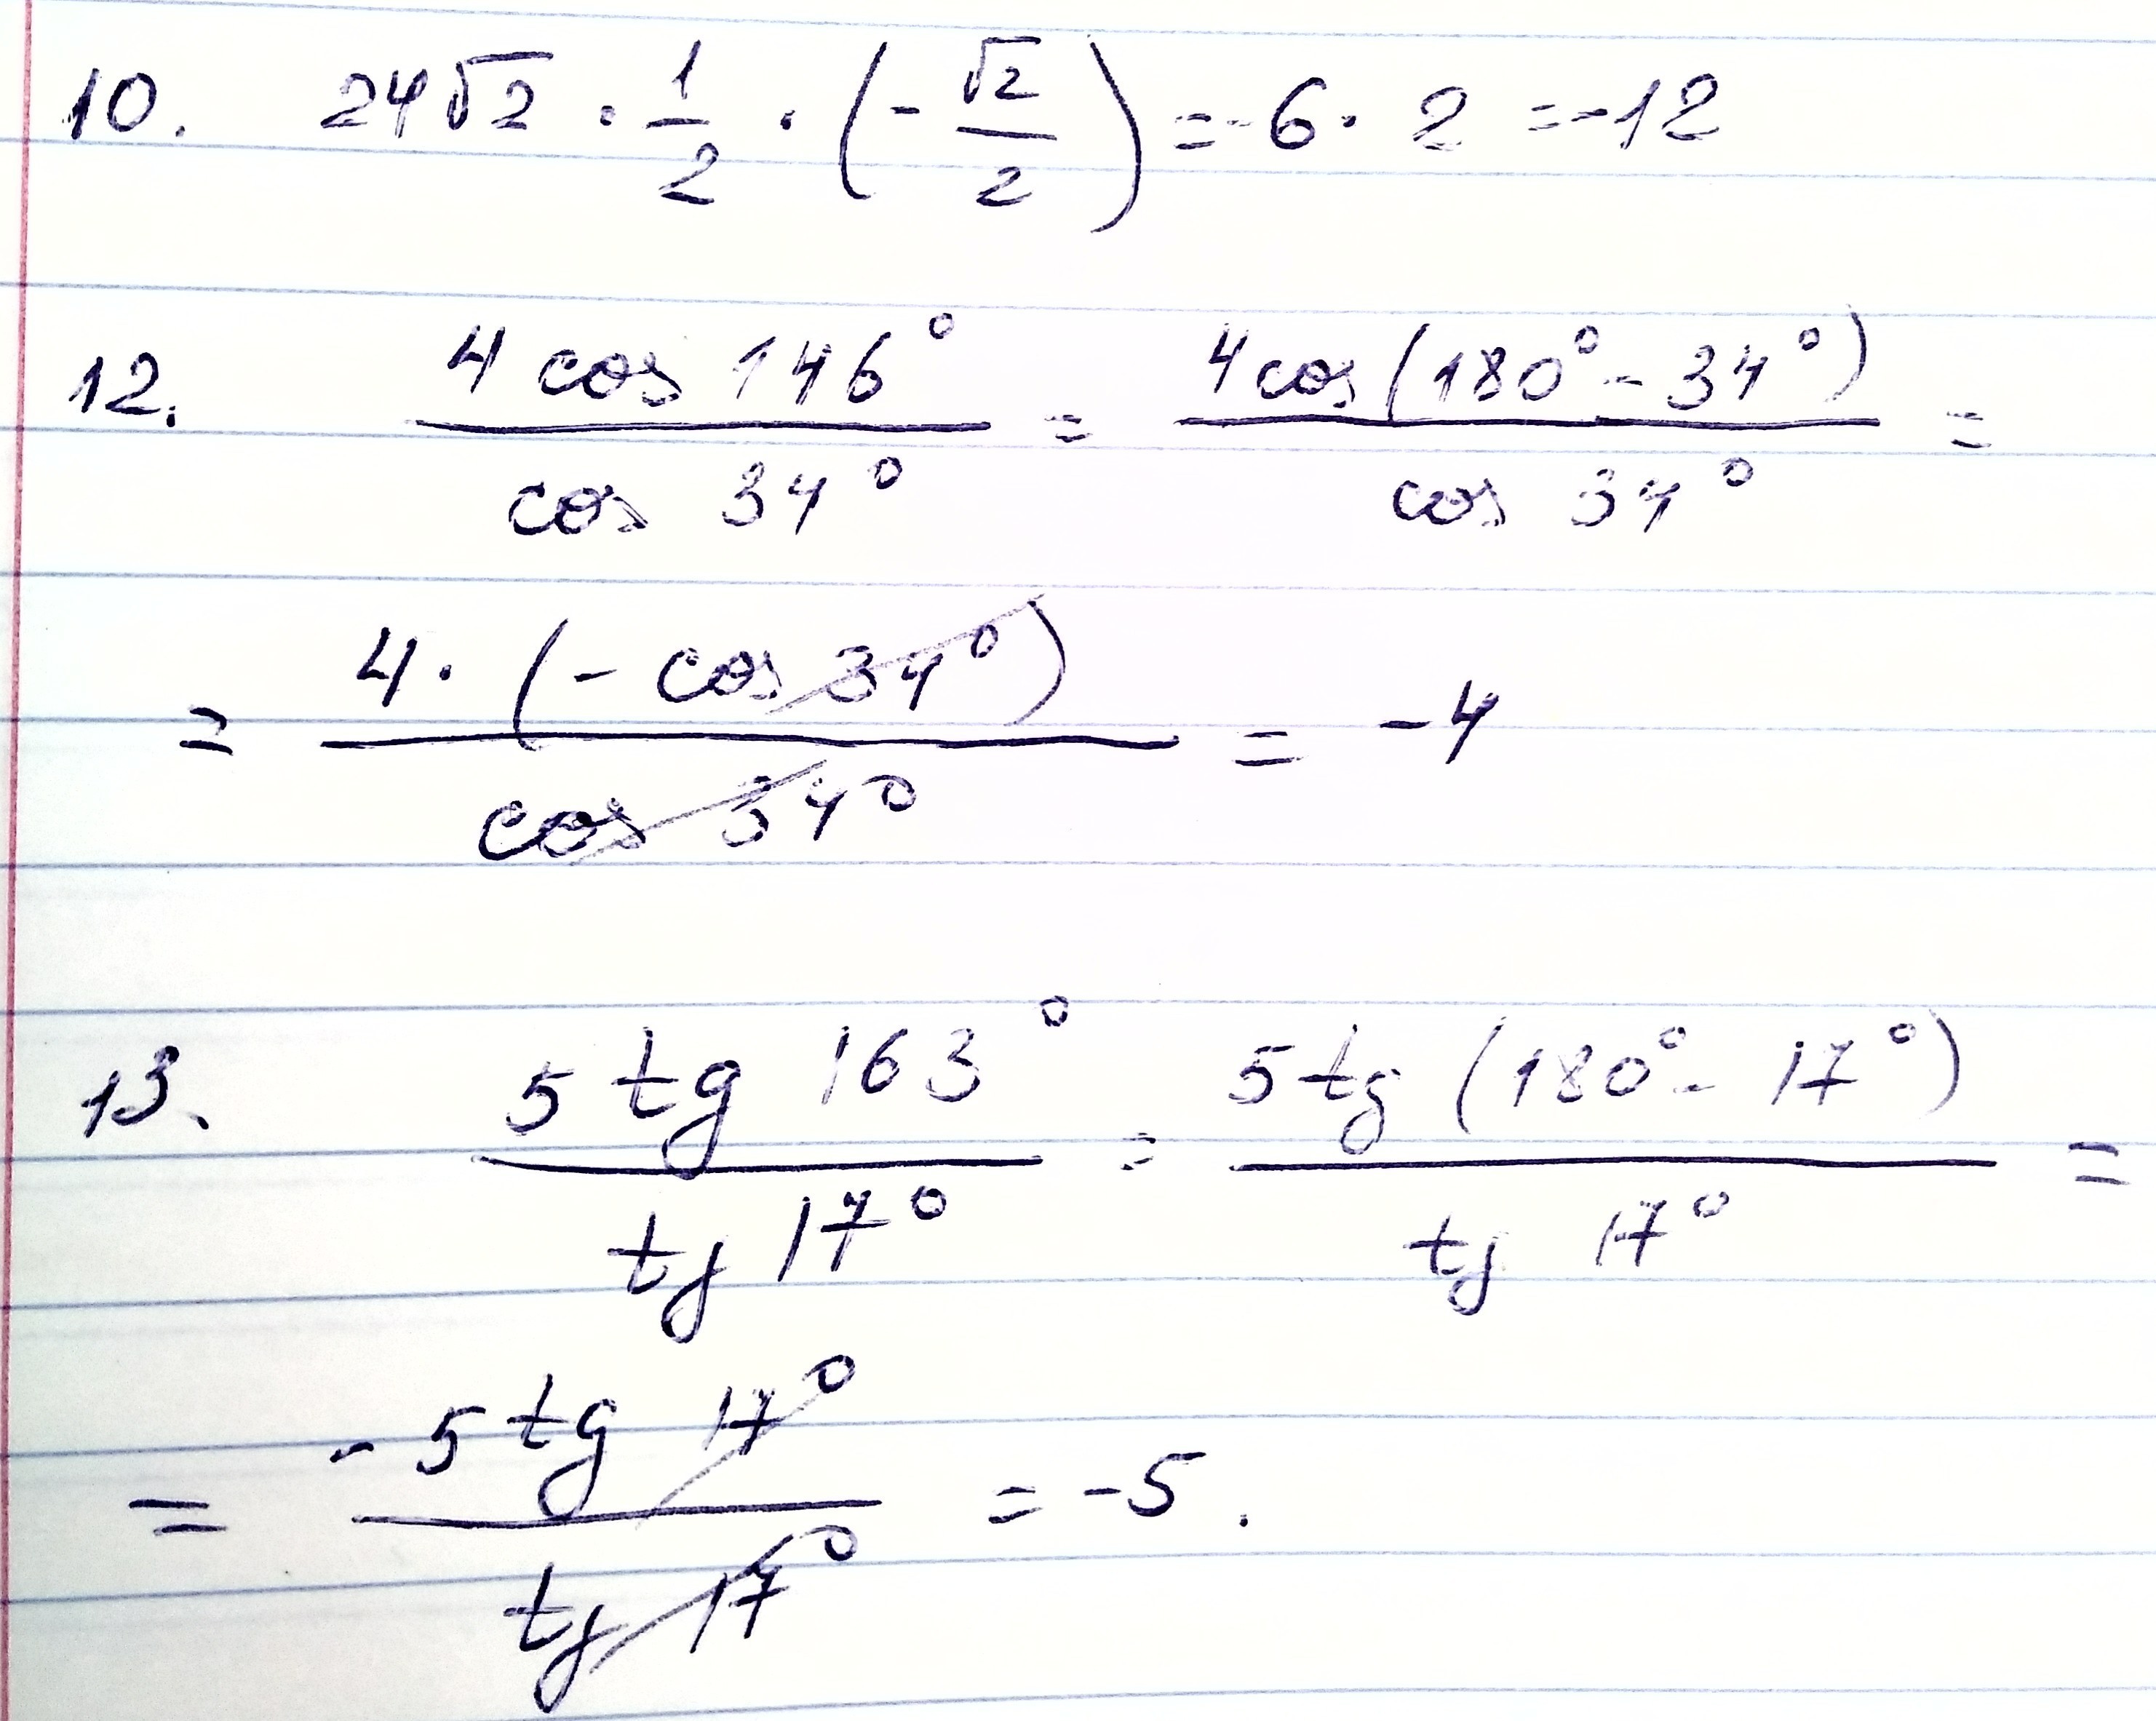 10. 24√2 · 1/2 · (-√2/2) = -6 · 2 = -12
12. 4 cos 146° / cos 34° = 4 cos (180° - 34°) / cos 34° =
= 4 · (- cos 34°) / cos 34° = -4
13. 5 tg 163° / tg 17° = 5 tg (180° - 17°) / tg 17° =
= -5 tg 17° / tg 17° = -5.